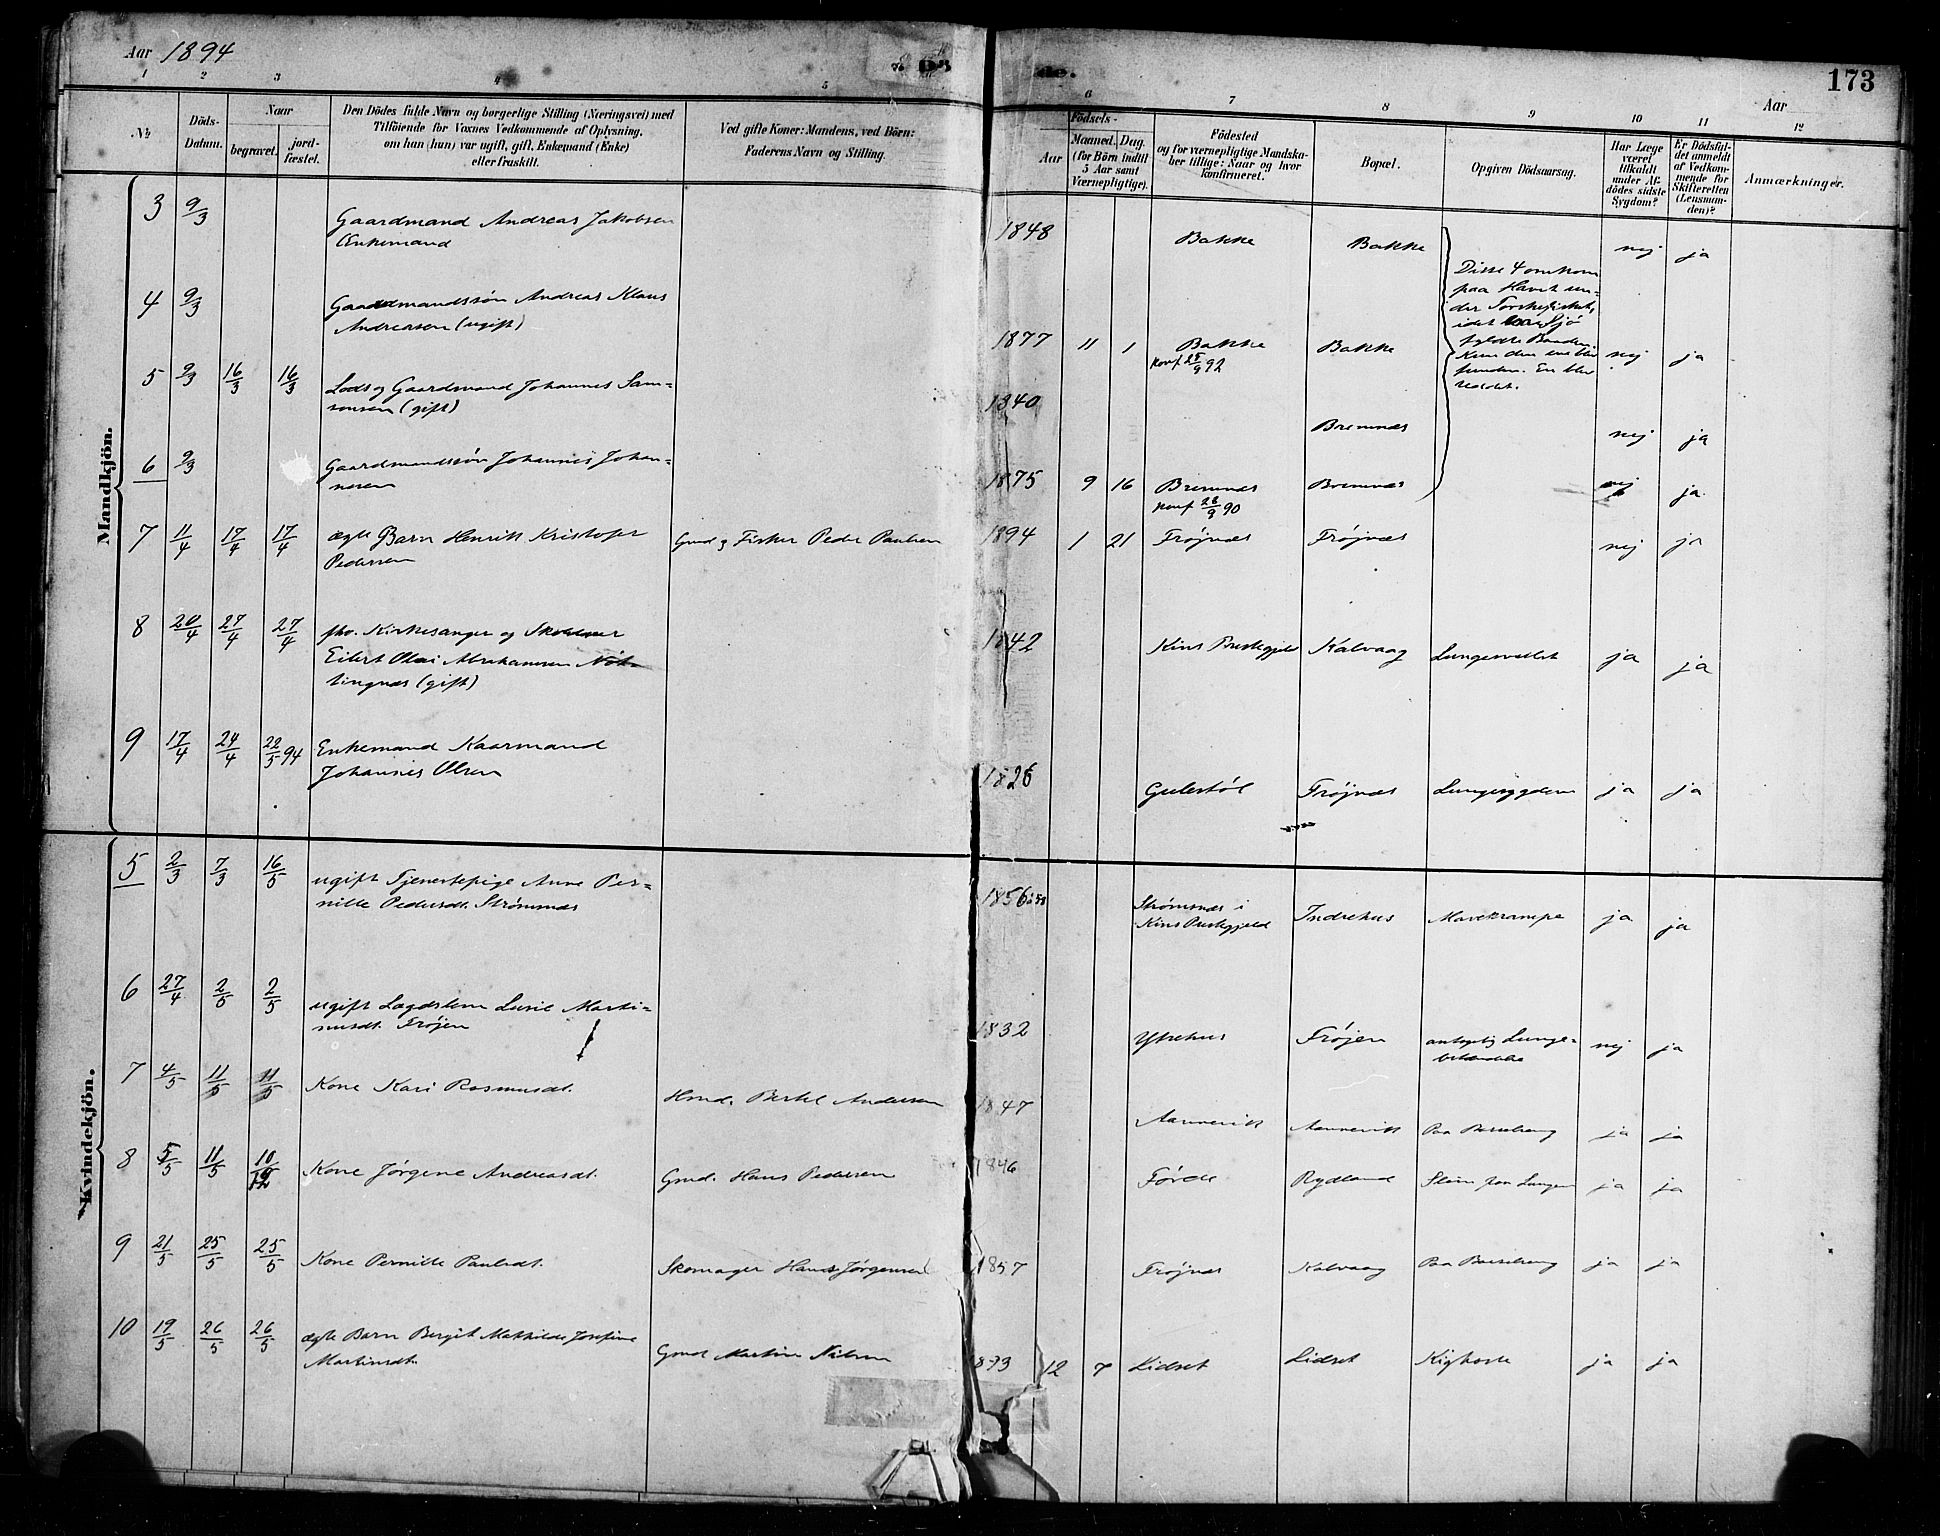 Aar 1894
de.
173
Aar
1 2 3 4 5 6 7 8 9 10 11 12
No
Döds-
Datum.
Naar
begravet.
jord-
fæstet.
Den Dödes fulde Navn og borgerlige Stilling (Næringsvei) med
Tilföiende for Voxnes Vedkommende af Oplysning,
om han (hun) var ugift, gift, Enkemand (Enke)
eller fraskilt.
Ved gifte Koner: Mandens, ved Börn:
Faderens Navn og Stilling.
Födsels-
Aar
Maaned. Dag.
(for Börn indtil
5 Aar samt
Værnepligtige).
Födested
og for værnepligtige Mandska-
ber tillige: Naar og hvor
konfirmeret.
Bopæl.
Opgiven Dödsaarsag.
Har Læge
været
tilkaldt
under Af-
dödes sidste
Sygdom?
Er Dödsfal-
det anmeldt
af Vedkom-
mende for
Skifteretten
(Lensman-
den)?
Anmærkninger.
Mandkjön.
3 9/3 Gaardmand Andreas Jakobsen
Enkemand
1848 Bakke Bakke nej ja
Disse 4 omkom
paa Havet un-
der Torskefisket,
idet Sjö
fyldte Baaden.
Kun den ene blev
funden. En blev
reddet.
4 9/3 Gaardmandssön Andreas Klaus
Andreassen (ugift)
1877 11 1 Bakke Bakke nej ja
konf 25/9 92
5 9/3 16/3 16/3 Lods og Gaardmand Johannes Sam-
sonsen (gift)
1840 Bremnæs nej ja
6 9/3 Gaardmandssön Johannes Johan-
nesen
1875 9 16 Bremnæs Bremnæs nej ja
konf 28/9 90
7 11/4 17/4 17/4 ægte Barn Henrik Kristofer
Pedersen
Gmd og Fisker Peder Paulsen 1894 1 21 Fröjnæs Fröjnæs nej ja
8 20/4 27/4 27/4 fhv. Kirkesanger og Skolelærer
Eilert Olai Abrahamsen Nöt-
tingnæs (gift)
1842 Kins Præstegjeld Kalvaag Lungesvulst ja ja
9 17/4 24/4 22/5 94 Enkemand Kaarmand
Johannes Olsen
1826 Gulestöl Fröjnæs Lungesygdom ja ja
Kvindekjön.
5 2/3 7/3 16/5 ugift Tjenestepige Anne Per-
nille Pedersdt. Strömmæs
1856 Strömsnæs i
Kins Præstegjeld Indrehus Mavekrampe ja ja
6 27/4 2/5 2/5 ugift Lægdslem Lusie Marti-
nusdt. Fröjen
1832 Ytrehus Fröjen antagelig Lunge-
betændelse nej ja
7 4/5 11/5 11/5 Kone Kari Rasmusdt.
Hmd. Bertel Andersen 1847 Aannevik Aannevik Paa Barselseng ja ja
8 5/5 11/5 10/12 Kone Jörgine Andreasdt. Gmd. Hans Pedersen 1846 Förde Rydland Sliim paa Lungen ja ja
9 21/5 25/5 25/5 Kone Pernille Paulsdt. Skomager Hans Jörgensen 1857 Fröjnæs Kalvaag Paa Barselseng ja ja
10 19/5 26/5 26/5 ægte Barn Bergit Mathilde Josefine
Martinsdt.
Gmd Martin Nilsen 1893 12 7 Lidset Lidset Kighoste ja ja